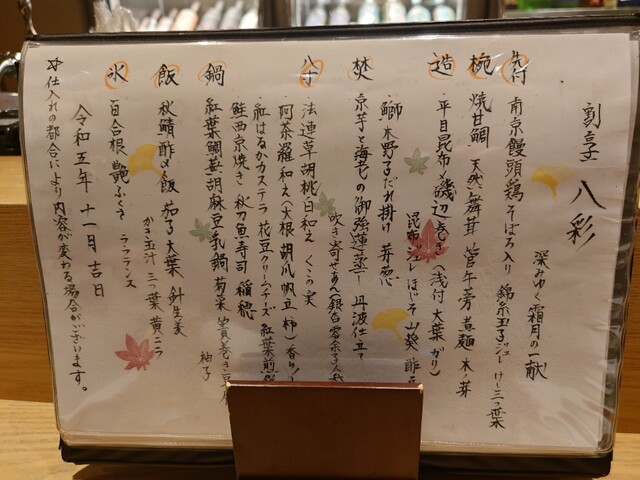 割烹 八彩
深みゆく霜月の一献
先付 南京饅頭 鶏そぼろ入り 錦糸玉子 ジュレ 三つ葉
椀 焼甘鯛 天然舞茸 管牛蒡 煮麺 木ノ芽
造 平目昆布〆磯辺巻き(浅付 大葉 がり)
昆布ジュレ ほじそ 山葵 酢
鰤 木野子だれ掛け 芽葱
焚 京芋と海老の御強蓮蒸し 丹波仕立て
吹き寄せあん(銀杏
八寸 法連草胡桃白和え くこの実
阿茶羅和え(大根 胡瓜 帆立 柿)
紅はるかカステラ 花豆クリームチーズ 紅葉煎餅
鮭西京焼き 秋刀魚寿司 稲穂
鍋 紅葉鯛蕪胡麻豆乳鍋 菊菜 巻き豆腐
柚子
飯 秋鯖酢〆飯 茄子 大葉 針生姜
かき玉汁 三つ葉 黄ニラ
氷 百合根 艶ふくさ
ラフランス
令和五年 十一月 吉日
※仕入れの都合により内容が変わる場合がございます。